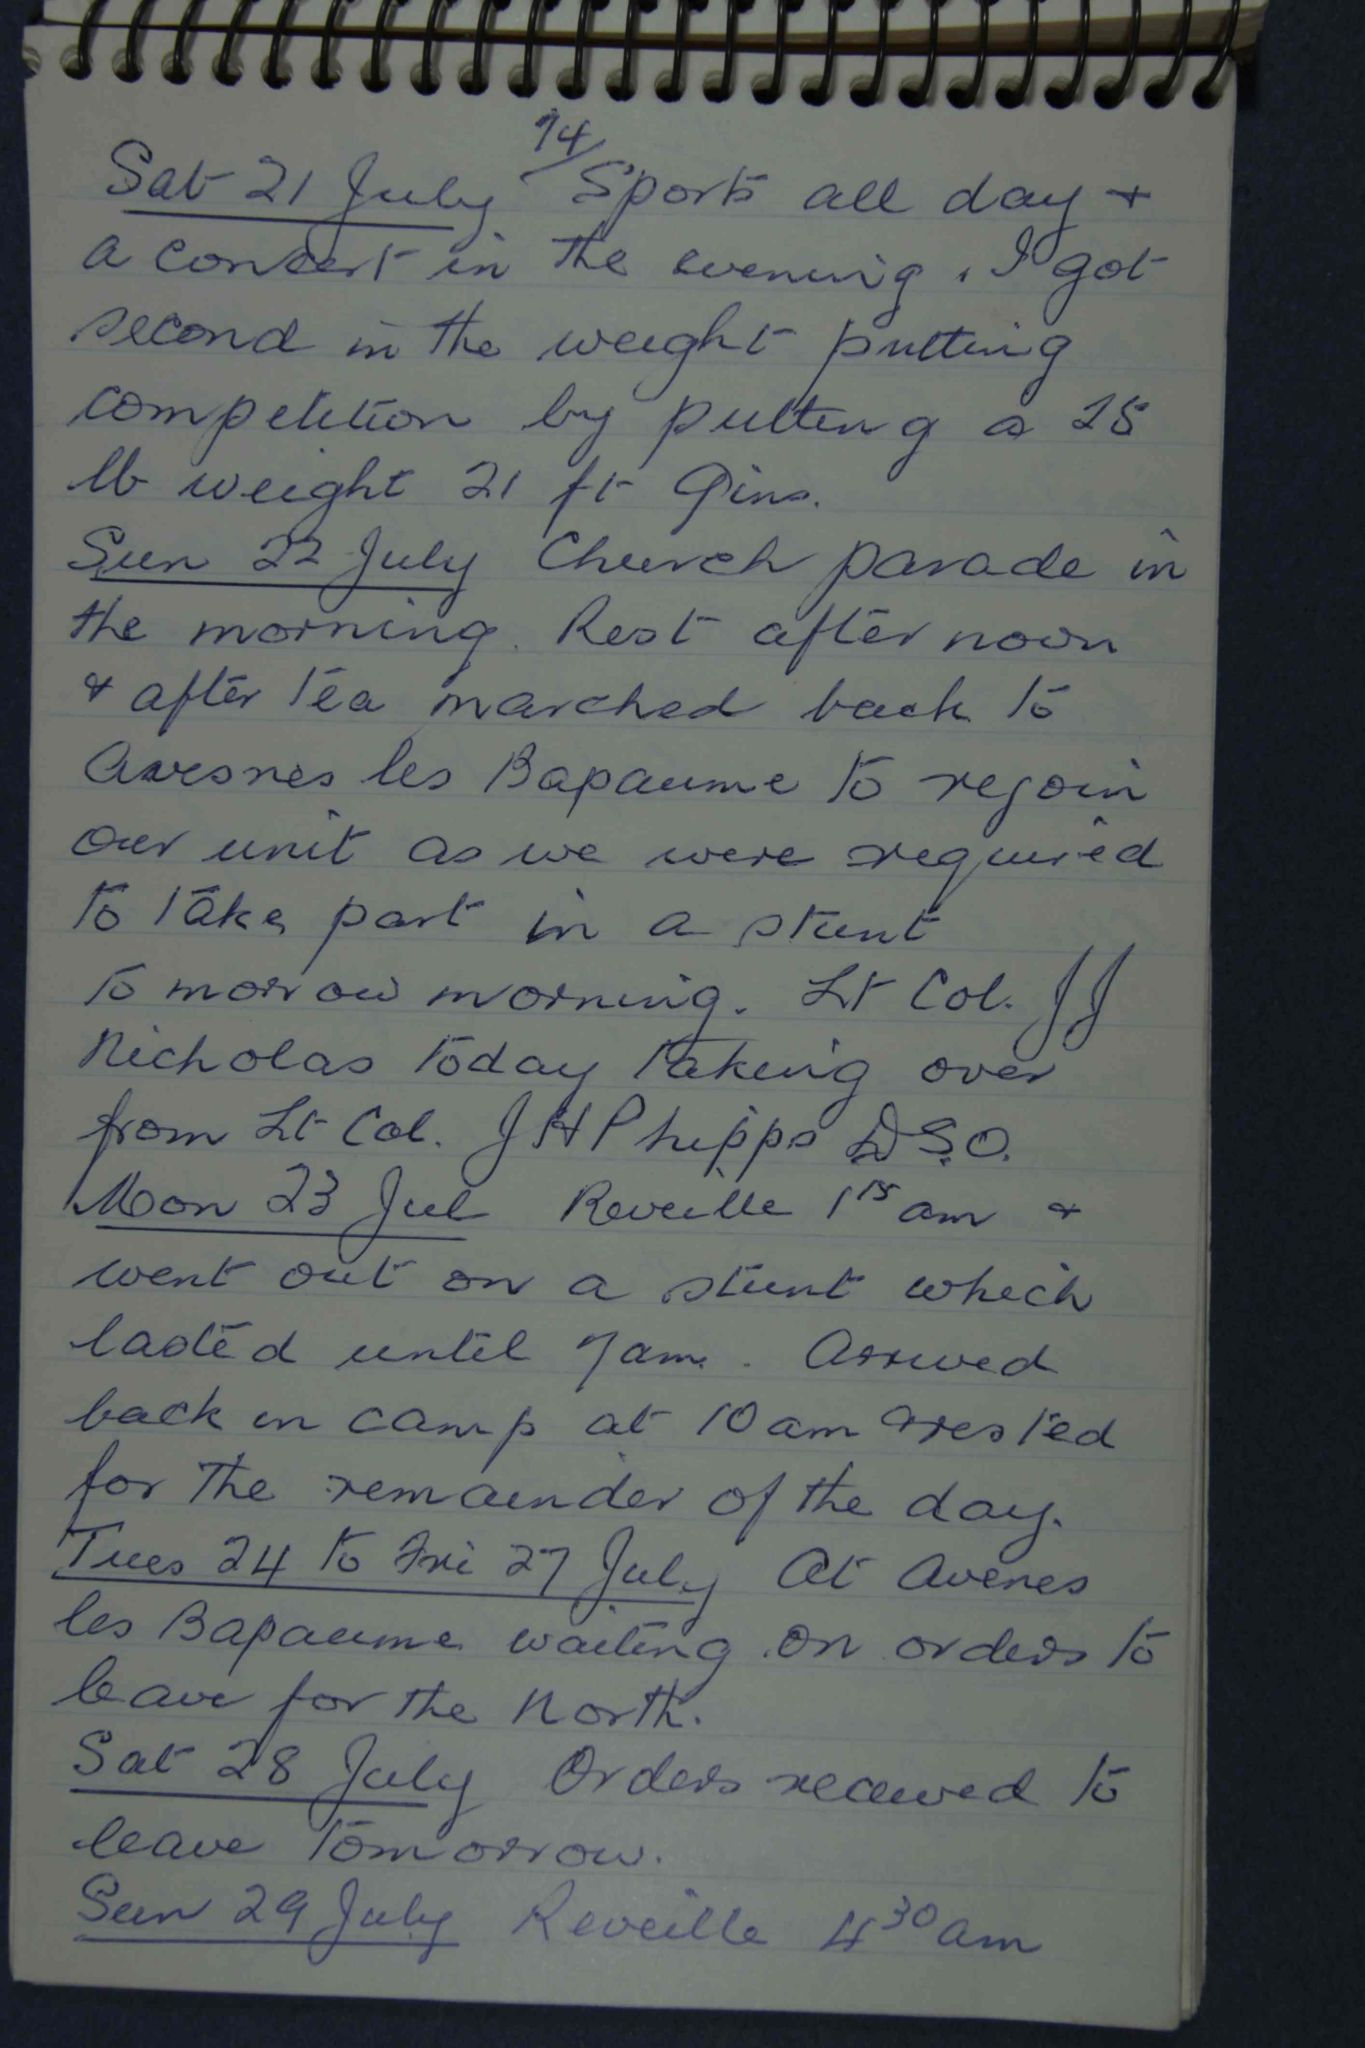 74/
Sat 21 July Sports all day +
a concert in the evening. I got
second in the weight putting
competition by putting a 28
lb weight 21 ft 9ins.
Sun 22 July Church parade in
the morning. Rest after noon
& after tea marched back to
Avesnes les Bapaume to rejoin
our unit as we were required
to take part in a stunt
tomorrow morning. Lt Col. JJ
Nicholas today taking over
from Lt Col. JHPhipps D.S.O.
Mon 23 Jul Reveille 1 15 am &
went out on a stunt which
lasted until 7am. Arrived
back in camp at 10am & rested
for the remainder of the day.
Tues 24 to Fri 27 July At Avenes
les Bapaume waiting on orders to
leave for the North.
Sat 28 July Orders received to
leave tomorrow.
Sun 29 July Reveille 4 30 am